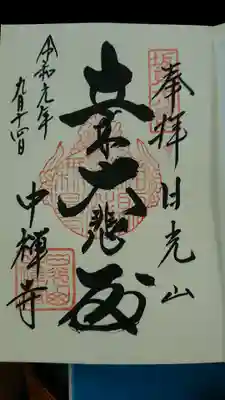 奉拝 日光山
立木大悲殿
中禅寺
令和元年
九月十四日